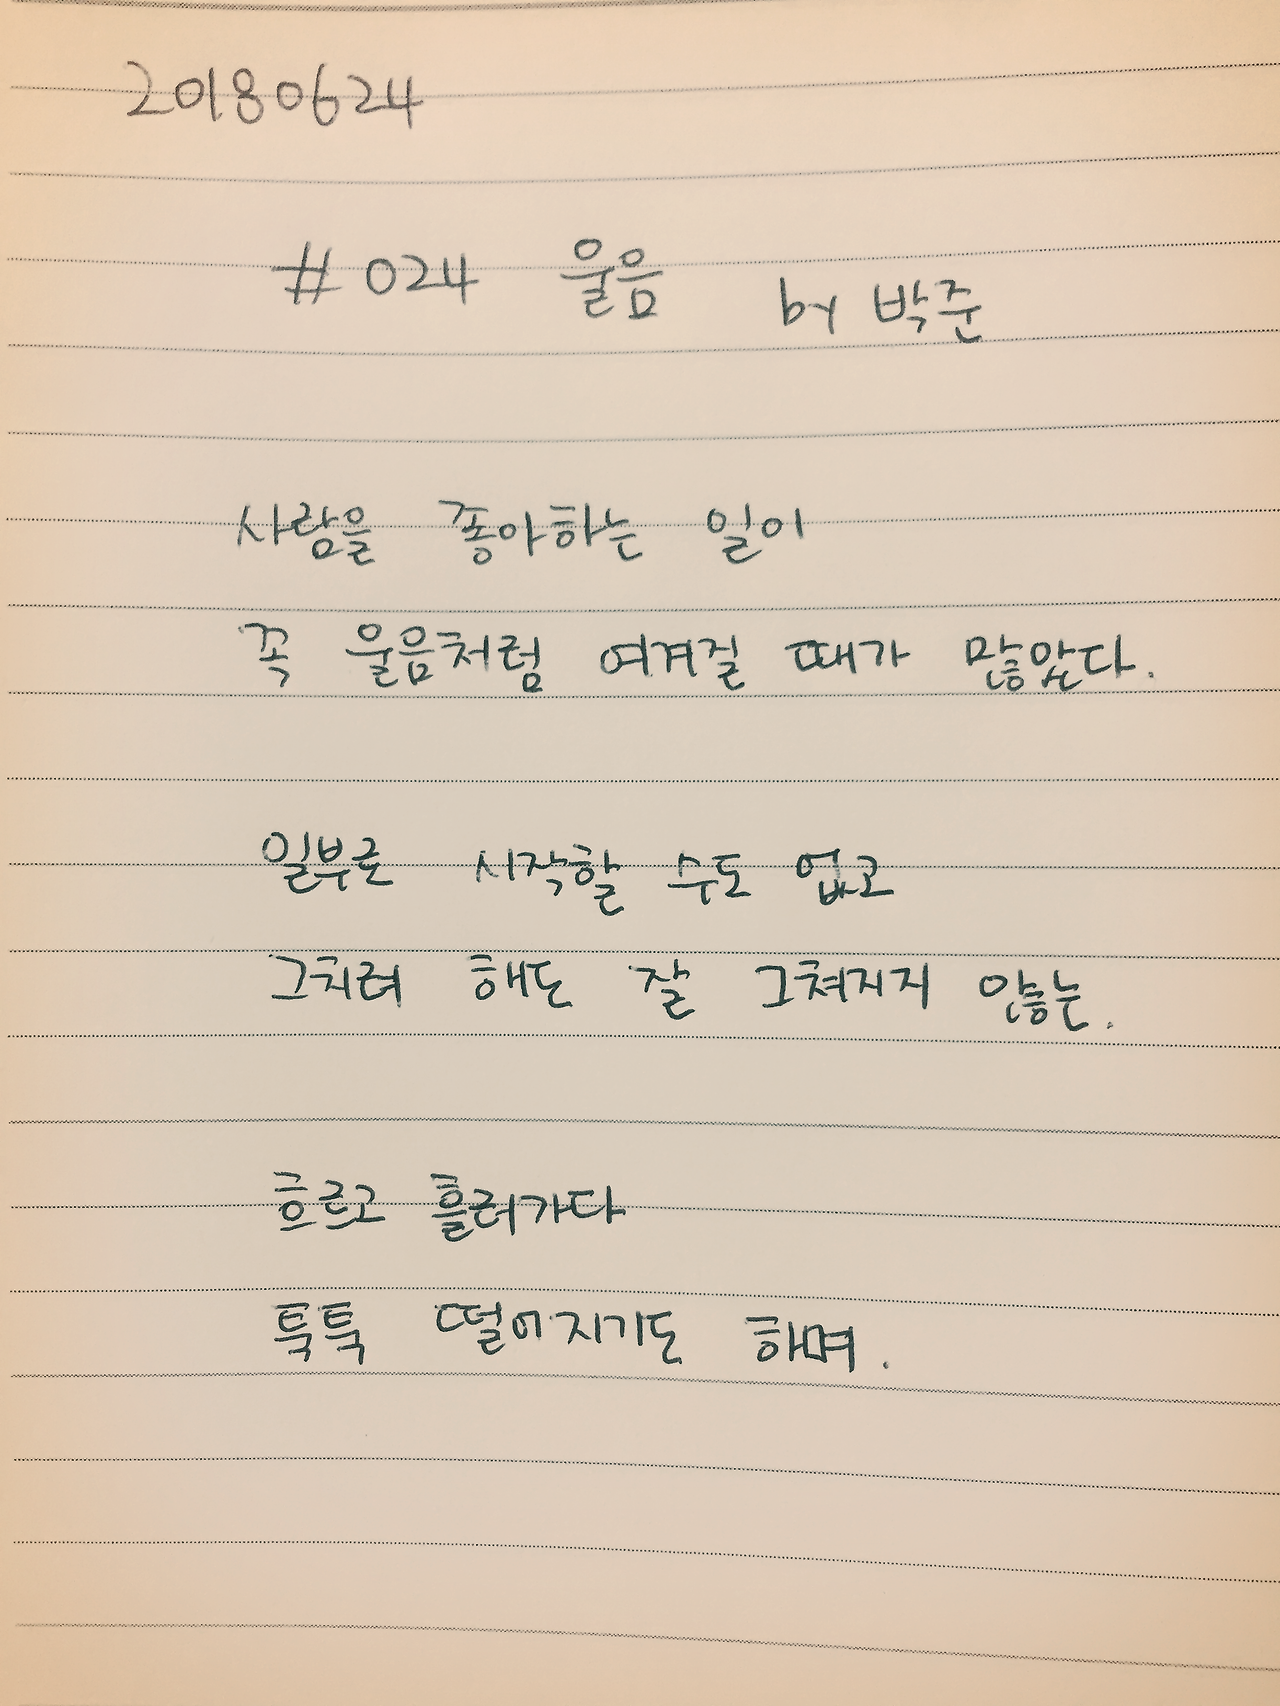 20180624
#024 울음 by 박준
사람을 좋아하는 일이
꼭 울음처럼 여겨질 때가 많았다.
일부로 시작할 수도 없고
그치려 해도 잘 그쳐지지 않는.
흐르고 흘러가다
툭툭 떨어지기도 하며.